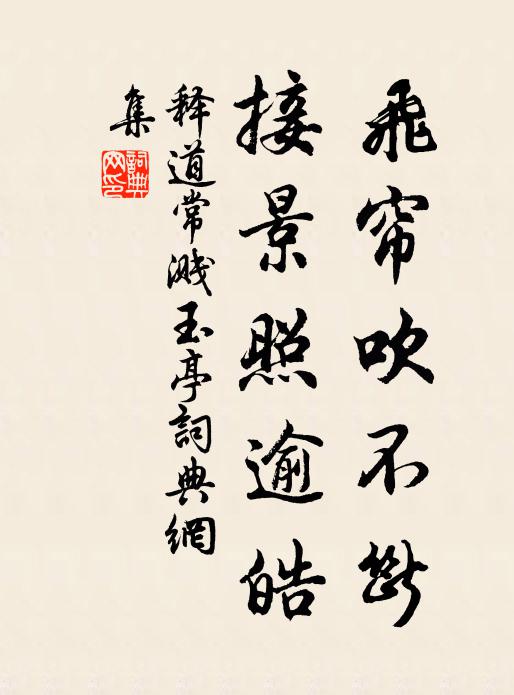 飛帘吹不斷
接景照逾皓
释道常溅玉亭詞典網
集
詞典網印